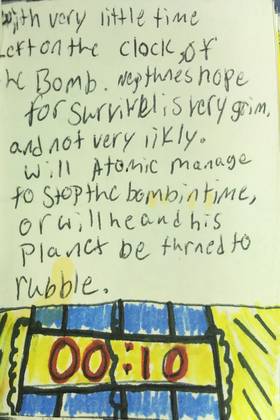 with very little time
Left on the clock, of
the Bomb. Neptunes hope
for survivel is very grim,
and not very likly.
will Atomic manage
to stop the bomb in time,
or will he and his
Planet be turned to
rubble.
00:10